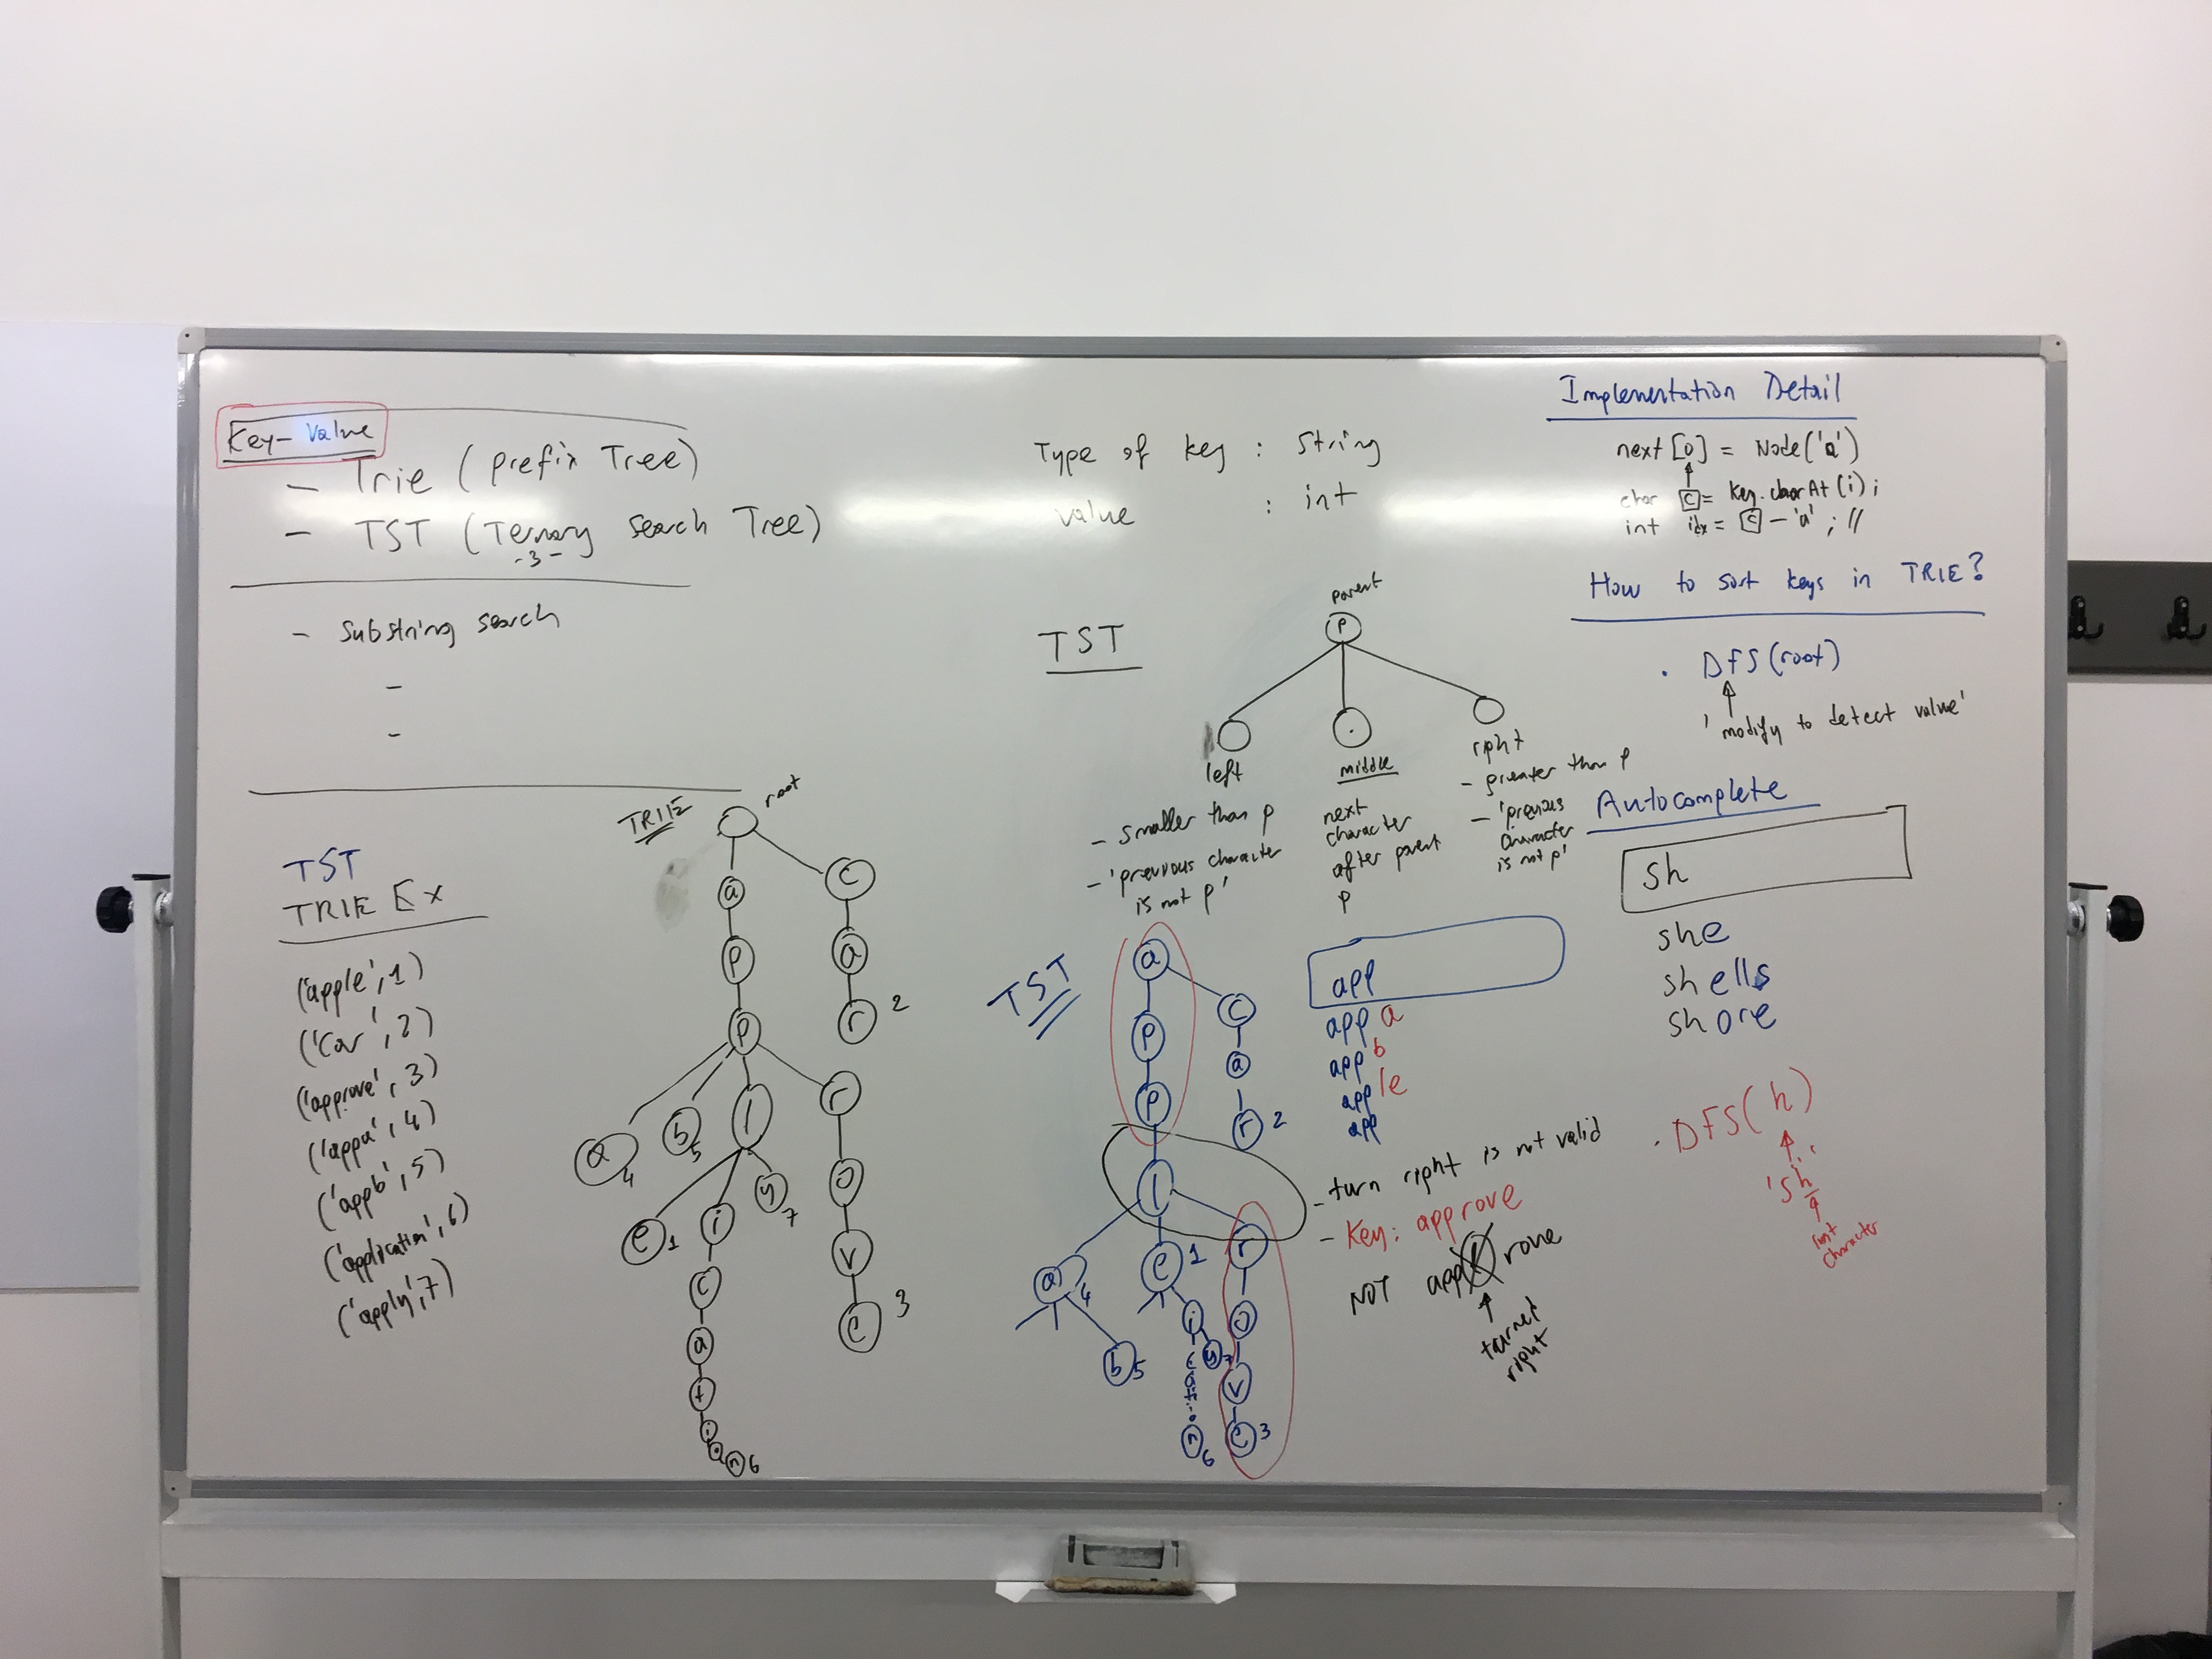 Key-Value
- Trie (prefix Tree)
- TST (Ternary search Tree)
-3-
- Substring search
-
-
TST
TRIE Ex
('apple',1)
('Car',2)
('approve',3)
('appa',4)
('appb',5)
('application',6)
('apply',7)
TRIE
root
a
c
p
a
p
r 2
a 4
b 5
l
r
e 1
i
y 7
o
c
v
a
e 3
t
i
o
n 6
Type of key : String
value : int
TST
parent
p
left
middle
right
- smaller than p
- 'previous character
is not p'
next
character
after parent
p
- greater than p
- 'previous
character
is not p'
TST
a
c
p
a
p
r 2
l
a 4
e 1
r
b 5
i
y 7
o
c
a
t
i
o
n 6
v
e 3
app
app a
app b
app le
app
- turn right is not valid
- Key: approve
NOT applrove
turned
right
Implementation Detail
next [0] = Node('a')
char c = key.charAt(i);
int idx = c - 'a'; //
How to sort keys in TRIE?
. DFS(root)
'modify to detect value'
Autocomplete
sh
she
shells
shore
. DFS(h)
'sh'
last
character